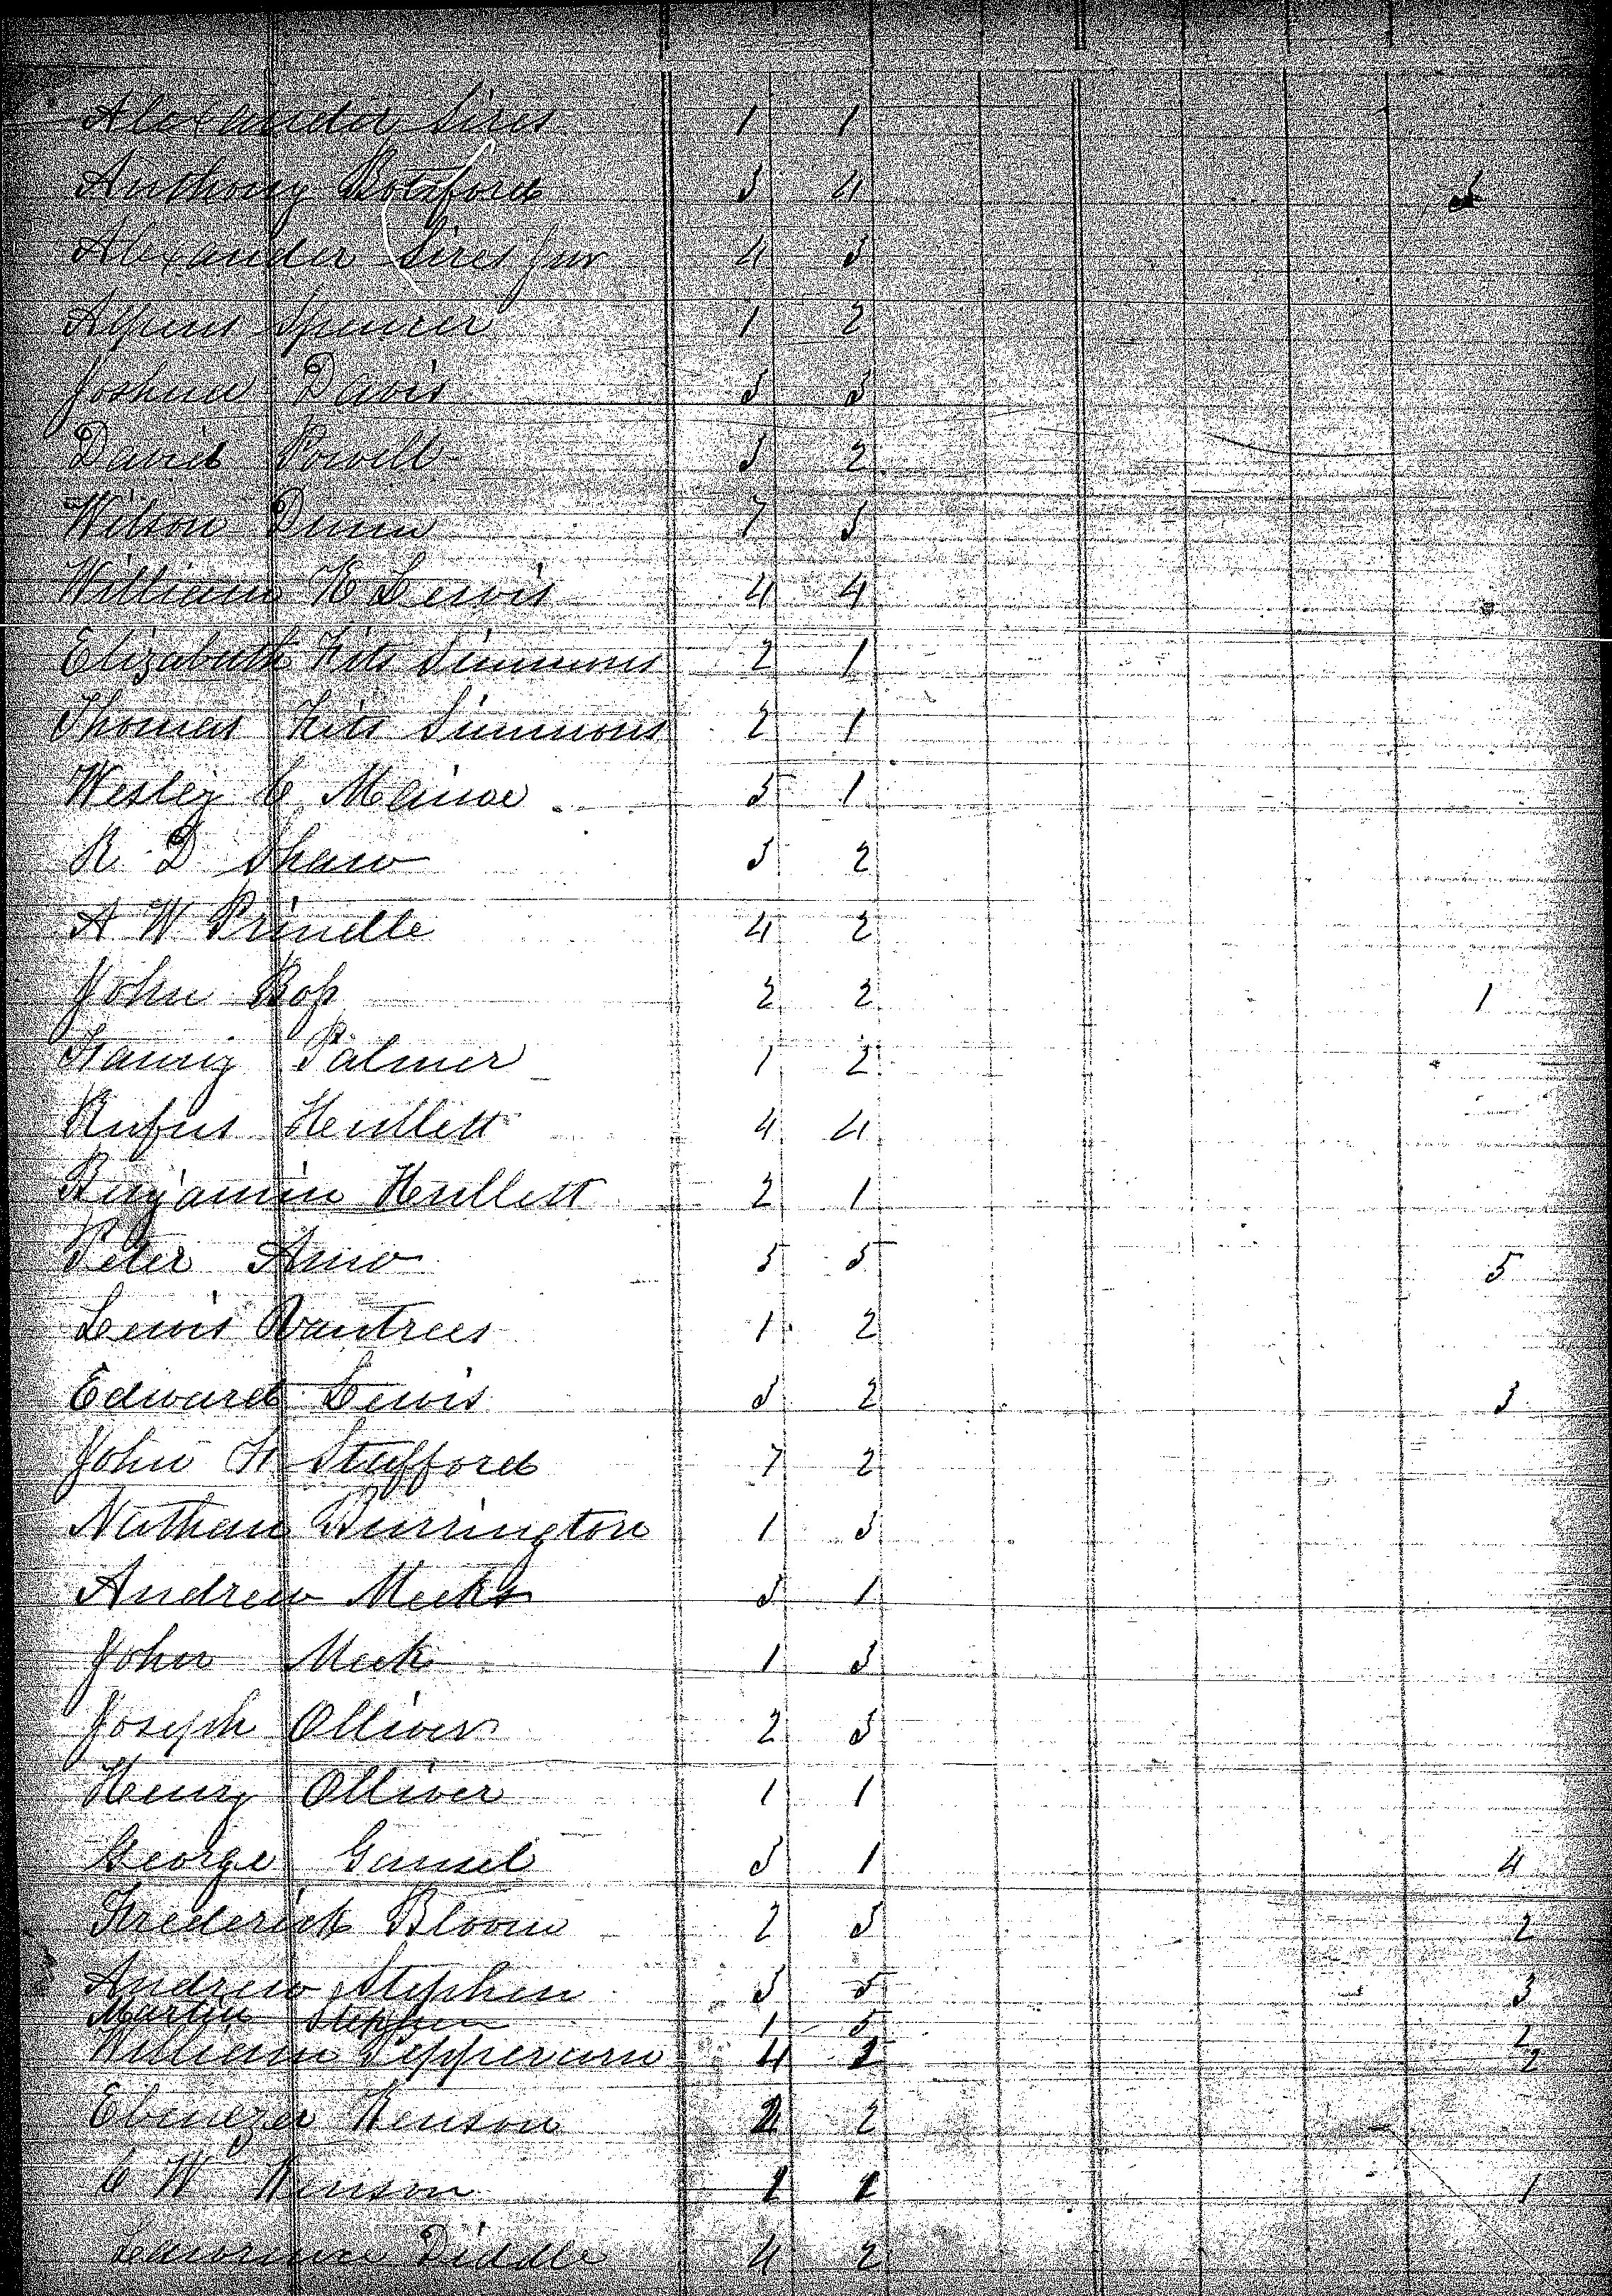 Alexander Sires 1 1
Anthony Botsford 3 4 3
Alexander Sires Junr 4 3
Alpeus Spencer 1 2
Joshua Davis 3 3
David Powell 3 2
Wilson Dunn 7 3
William H Lewis 4 4
Elizabeth Fits Simmons 2 1
Thomas Fits Simmons 2 1
Wesley C 5 1
R D Shaw 3 2
A W Prindle 4 2
John Boss 2 2 1
Fanny Palmer 1 2
Rufus Hullett 4 4
Benjamin Hullett 2 1
Peter Amo 5 5 5
Lewis Vantrees 1 2
Edward Lewis 3 2 3
John F Stafford 7 2
Nathan Burrington 1 3
Andrew Meeks 3 1
John Meek 1 3
Joseph Olliver 2 3
Henry Olliver 1 1
George Gansel 3 1 4
Frederick Bloom 2 3 2
Andrew Stephen 3 5 3
Martin Stephen 1 5 2
William 4 2
Ebenezer Henson 2 2
C W Henson 1 1 1
Lawrence Diddle 4 2